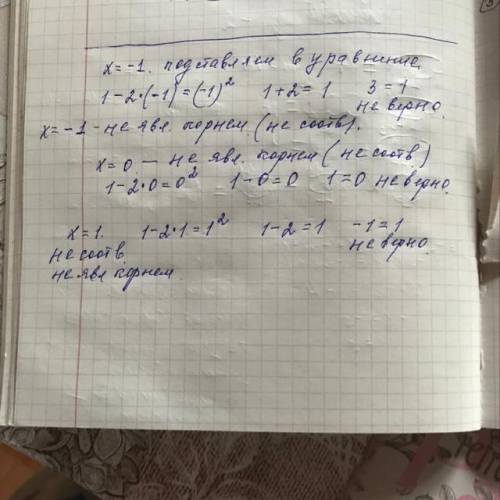 x = -1. подставляем в уравнение.
1-2·(-1)=(-1)² 1+2=1 3=1
не верно.
x=-1 - не явл. корнем. (не соотв).
x=0 - не явл. корнем (не соотв.)
1-2·0=0² 1-0=0 1=0 не верно.
x=1. 1-2·1=1² 1-2=1 -1=1
не соотв. не верно.
не явл корнем